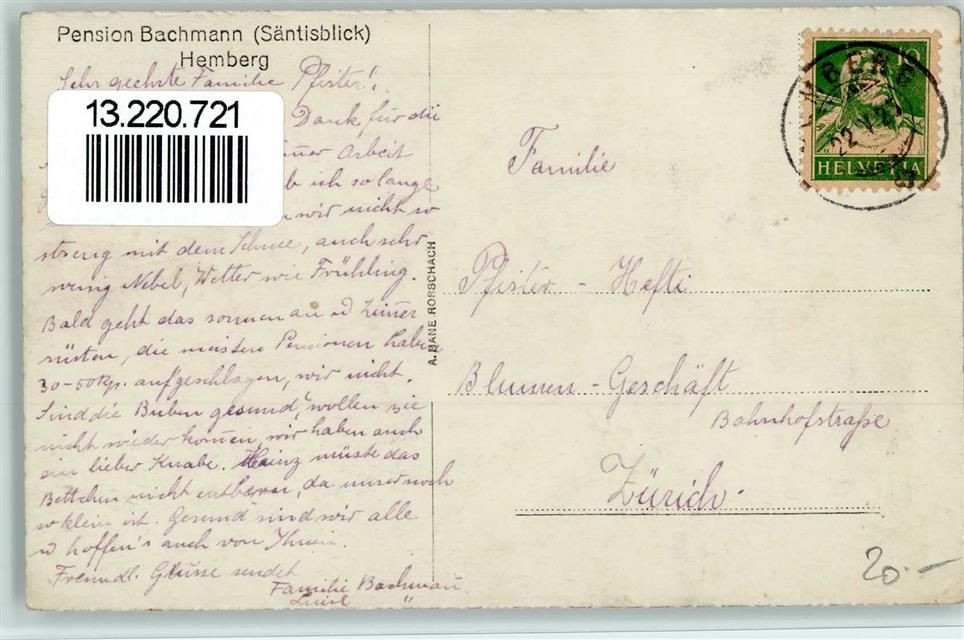 Pension Bachmann (Säntisblick)
Hemberg
Sehr geehrte Familie Pfister!
13.220.721
Dank für die
Arbeit
ich so lange
wir nicht so
streng mit dem Schnee, auch sehr
wenig Nebel, Wetter wie Frühling.
Bald geht das sonnen an u Zimmer
rüsten, die meisten Pensionen haben
30-50Rp. aufgeschlagen, wir nicht.
Sind die Buben gesund, wollen sie
nicht wieder kommen, wir haben auch
ein lieber Knabe. Heinz müste das
Bettchen nicht entberen, da unser noch
so klein ist. Gesund sind wir alle
u hoffen's auch von Ihnen.
Freundl. Grüsse sendet
Familie Bachmann
A. HANE RORSCHACH
10
HELVETIA
HEMBERG
22. V.
Familie
Pfister - Hefti
Blumen-Geschäft
Bahnhofstraße
Zürich.
20.-